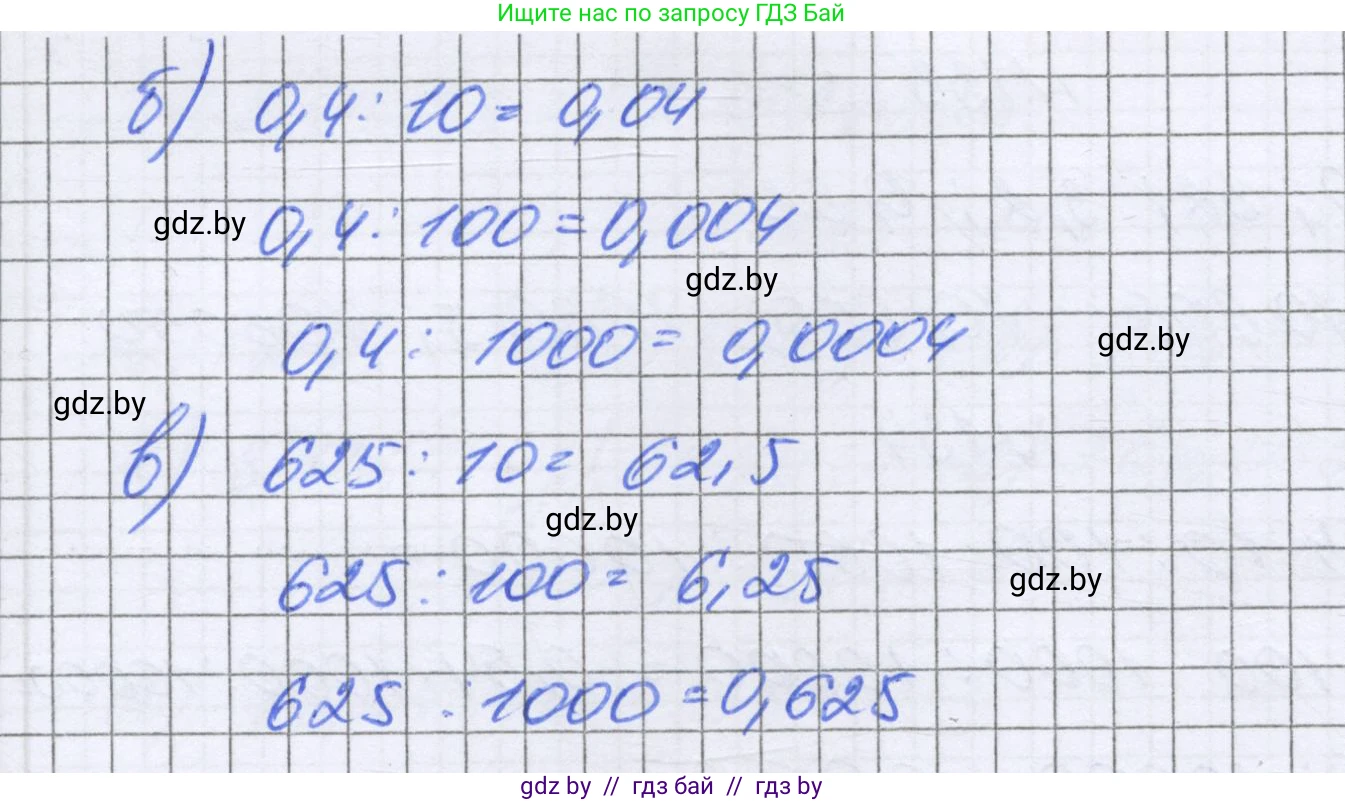 Ищите нас по запросу ГДЗ Бай
б) 0,4 : 10 = 0,04
gdz.by 0,4 : 100 = 0,004
gdz.by
0,4 : 1000 = 0,0004 gdz.by
gdz.by
в) 625 : 10 = 62,5
gdz.by
625 : 100 = 6,25 gdz.by
625 : 1000 = 0,625
gdz.by // гдз бай // гдз by